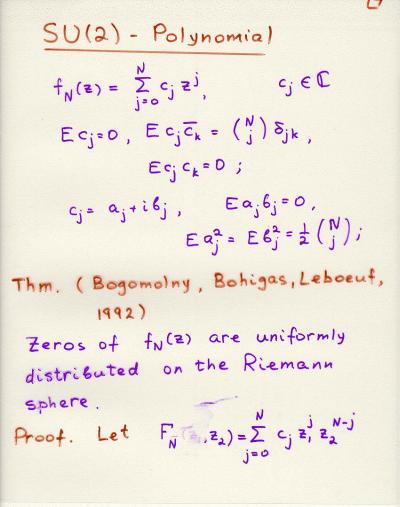 SU(2) - Polynomial
f_N(z) = Σ_{j=0}^{N} c_j z^j, c_j ∈ ℂ
E c_j = 0, E c_j \overline{c_k} = (N j) δ_{jk},
E c_j c_k = 0;
c_j = a_j + i b_j, E a_j b_j = 0,
E a_j^2 = E b_j^2 = 1/2 (N j);
Thm. (Bogomolny, Bohigas, Leboeuf,
1992)
Zeros of f_N(z) are uniformly
distributed on the Riemann
sphere.
Proof. Let F_N(z_1, z_2) = Σ_{j=0}^{N} c_j z_1^j z_2^{N-j}